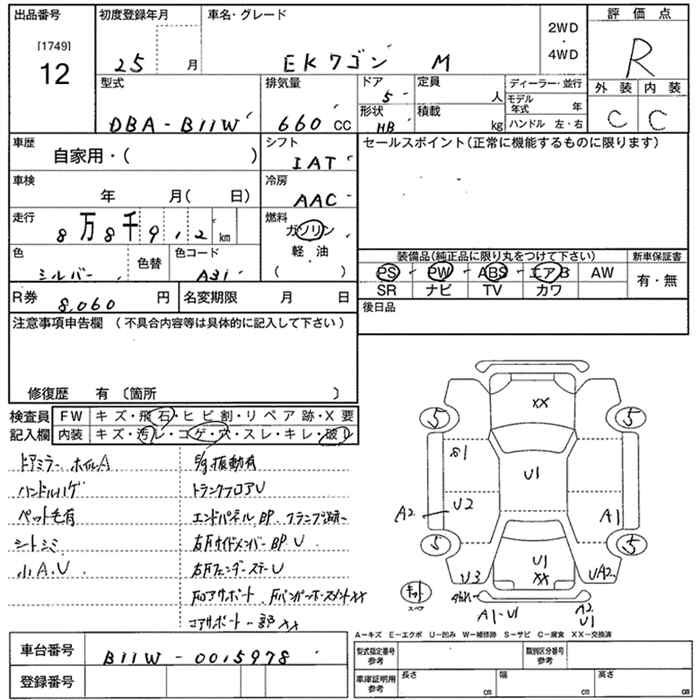 出品番号
[1749]
12
初度登録年月
25 月
車名・グレード
EKワゴン M
2WD
・
4WD
評価点
R
外装 内装
C C
型式
DBA-B11W
排気量
660 CC
ドア
5
形状
HB
定員
人
積載
kg
ディーラー・並行
モデル年式 年
ハンドル 左・右
車歴
自家用・( )
シフト
IAT
セールスポイント(正常に機能するものに限ります)
車検
年 月( 日)
冷房
AAC
走行
8万8千9 1 2 km
燃料
ガソリン
軽・油
( )
色
シルバー
色替
色コード
A31
装備品(純正品に限り丸をつけて下さい)
新車保証書
PS PW ABS エアB AW
SR ナビ TV カワ
有・無
R券
8,060 円
名変期限 月 日
後日品
注意事項申告欄 (不具合内容等は具体的に記入して下さい)
修復歴 有〔箇所 〕
検査員記入欄
FW キズ・飛石・ヒビ割・リペア跡・X要
内装 キズ・汚レ・コゲ・穴・スレ・キレ・破レ
ドアミラー ホイルA
ハンドルハゲ
ペット毛有
シートシミ
小A.U
E/g振動有
トランクフロアU
エンドパネルBP.
右Rサイドメンバー BP U
XX
5 5
S1
U1
U2
A2
A1
5 5
U1
XX
U3
UA2
キット
スペア
A1-U1
A2
U1
A-キズ E-エクボ U-凹み W-補修跡 S-サビ C-腐食 XX-交換済
車台番号
B11W-0015978
登録番号
型式指定番号 参考
類別区分番号 参考
車庫証明用 参考
長さ cm
幅 cm
高さ cm